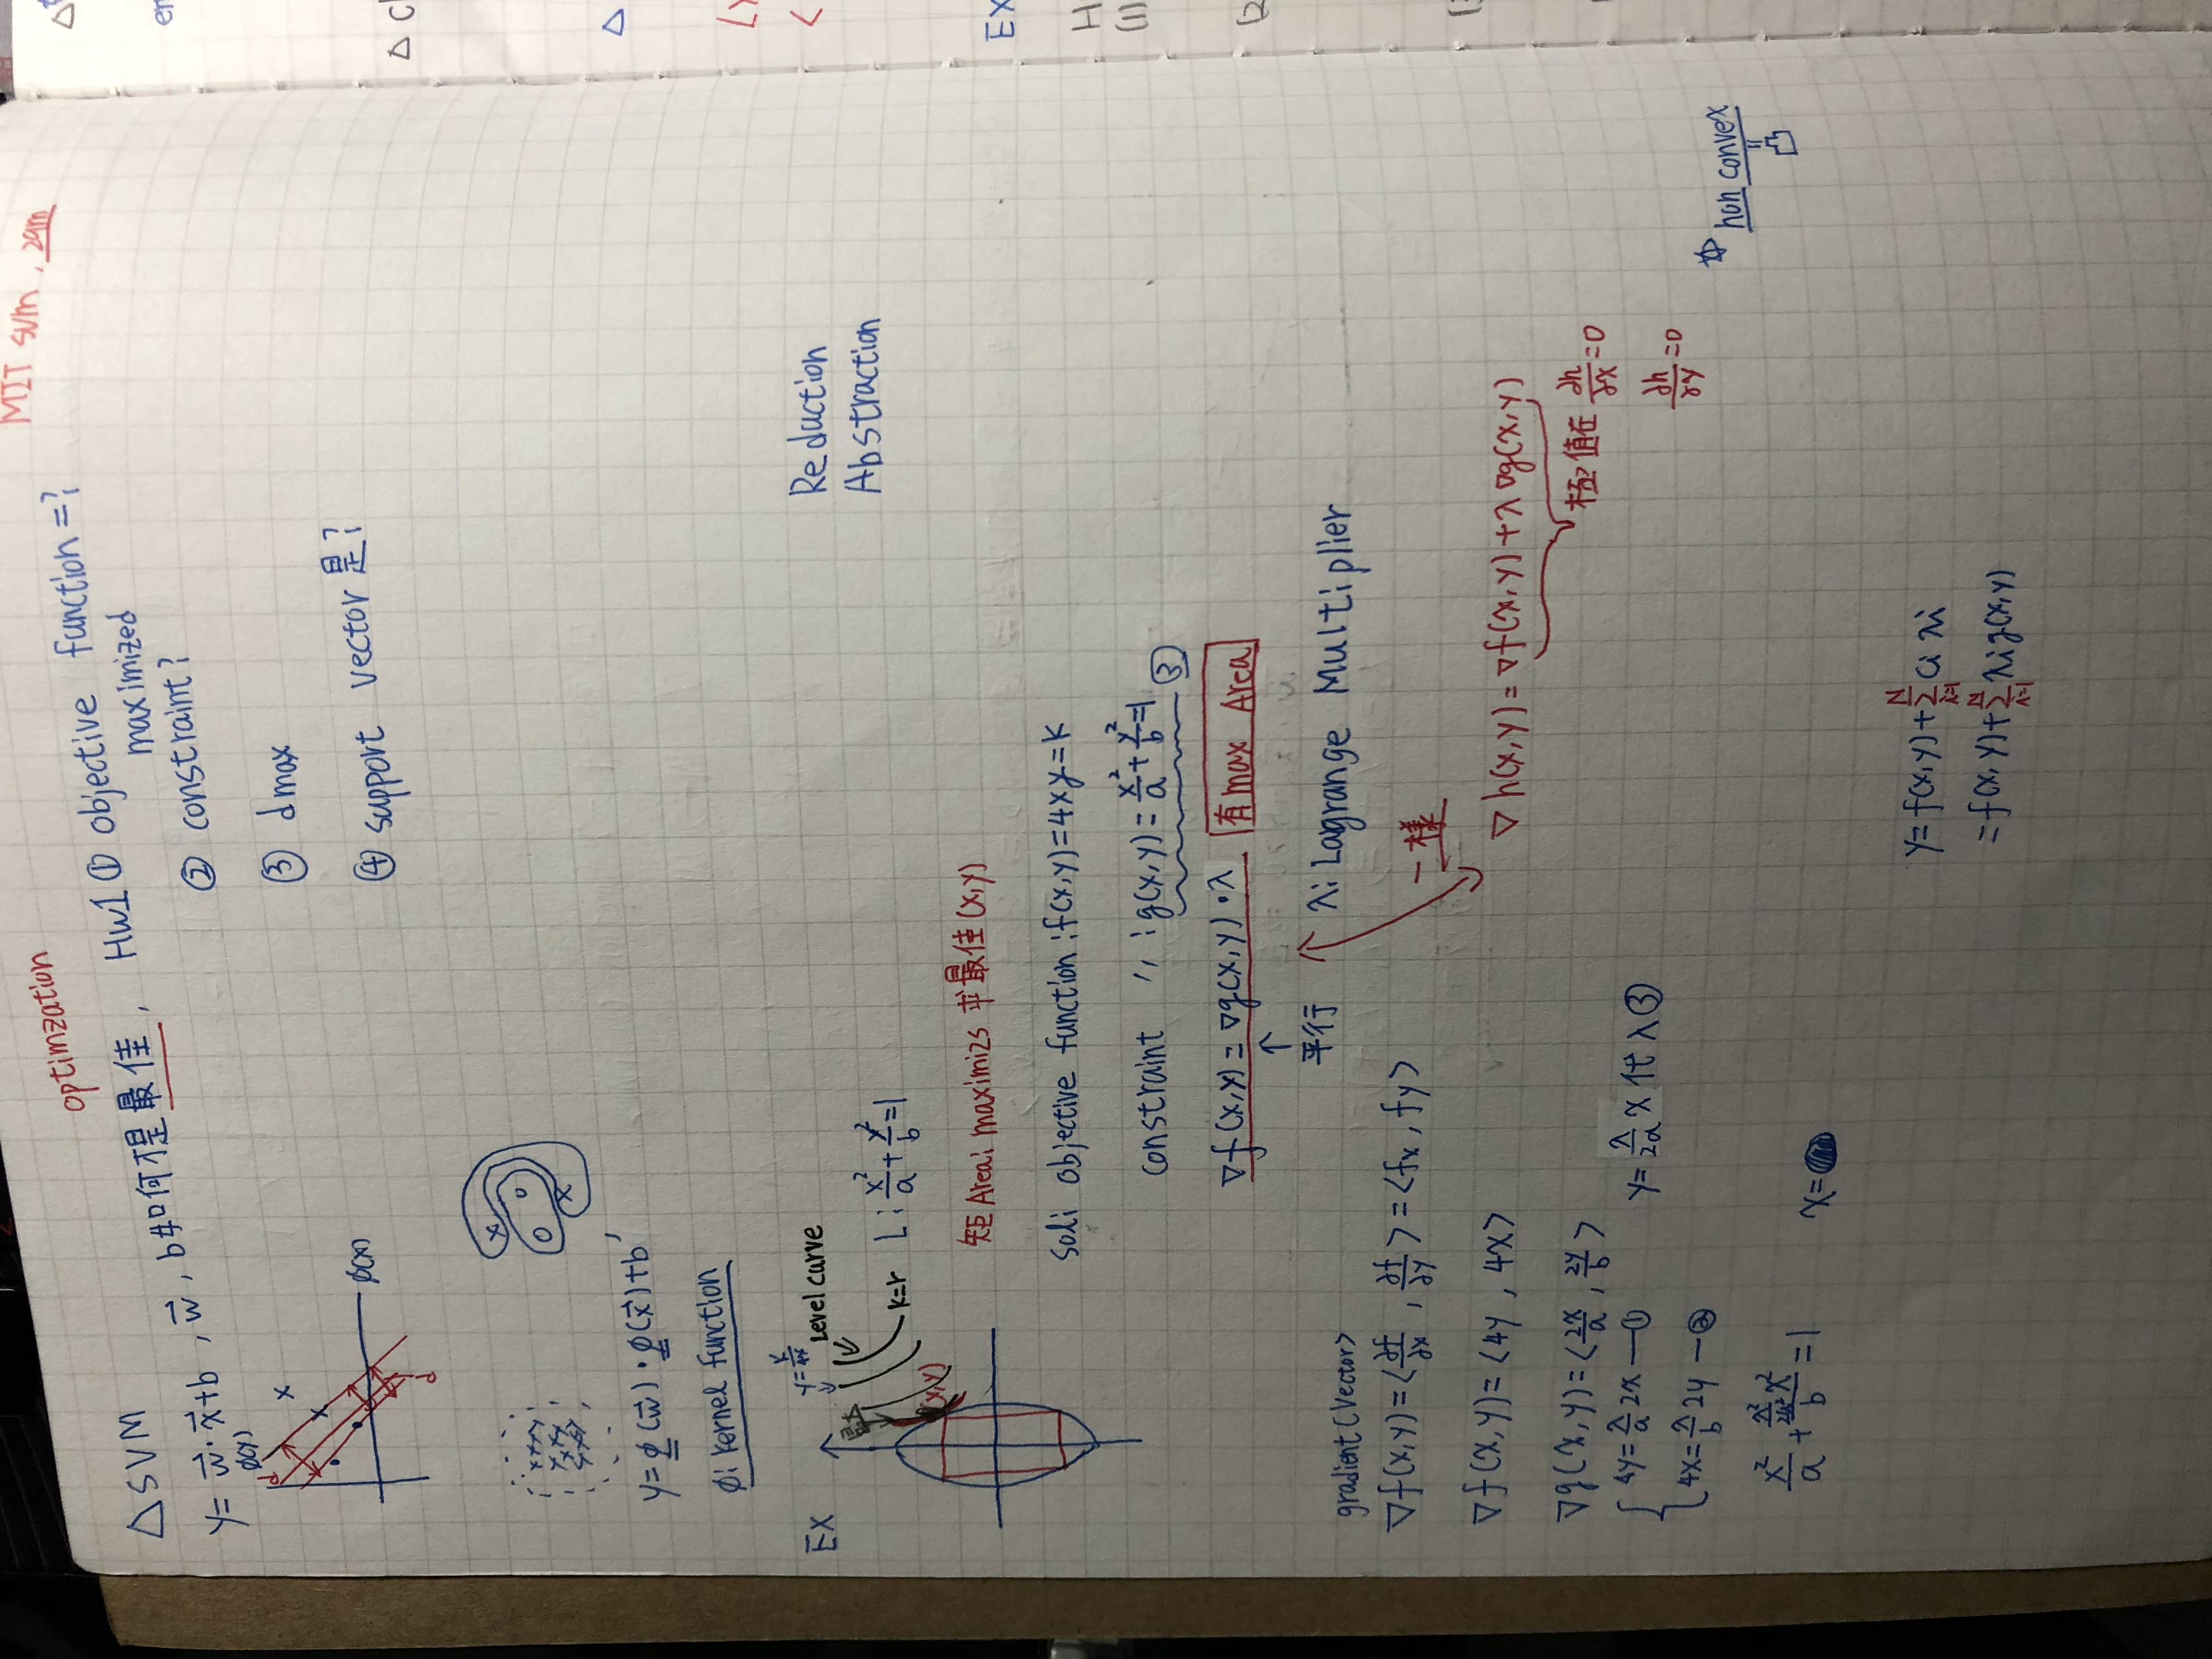 MIT SVM, 29m
optimzation
△SVM
y= w⃗·x⃗+b , w⃗, b如何是最佳,
HW1 ① objective function =?
maximized
② constraint?
③ dmax
④ support vector是?
φ(y)
d
x
x
φ(x)
d
y=φ(w⃗)·φ(x⃗)+b'
φ: kernel function
EX
y=K/4x
Level curve
k=r
(x,y)
L: x²/a+y²/b=1
Reduction
Abstraction
矩Area: maximizs 求最佳(x,y)
Sol: objective function :f(x,y)=4xy=K
constraint 〃 :g(x,y)=x²/a+y²/b=1 ③
∇f(x,y)=∇g(x,y)·λ 有max Area
↑
平行
λ: Lagrange Multiplier
gradient(Vector)
∇f(x,y)=<∂f/∂x , ∂f/∂y>=<fx , fy>
一樣
∇f(x,y)=<4y , 4x>
∇h(x,y)=∇f(x,y)+λ∇g(x,y)
∇g(x,y)=<2x/a , 2y/b>
極值在 ∂h/∂x=0
∂h/∂y=0
4y=λ/a 2x —①
4x=λ/b 2y —②
y=λ/2a x 代入③
non convex
x²/a+ λ²/2a² x²/b =1
x=
y=f(x,y)+∑ᵢ₌₁ᴺ Ci λi
=f(x,y)+∑ᵢ₌₁ᴺ λi g(x,y)
△
△
△
EX
H
(1)
(2